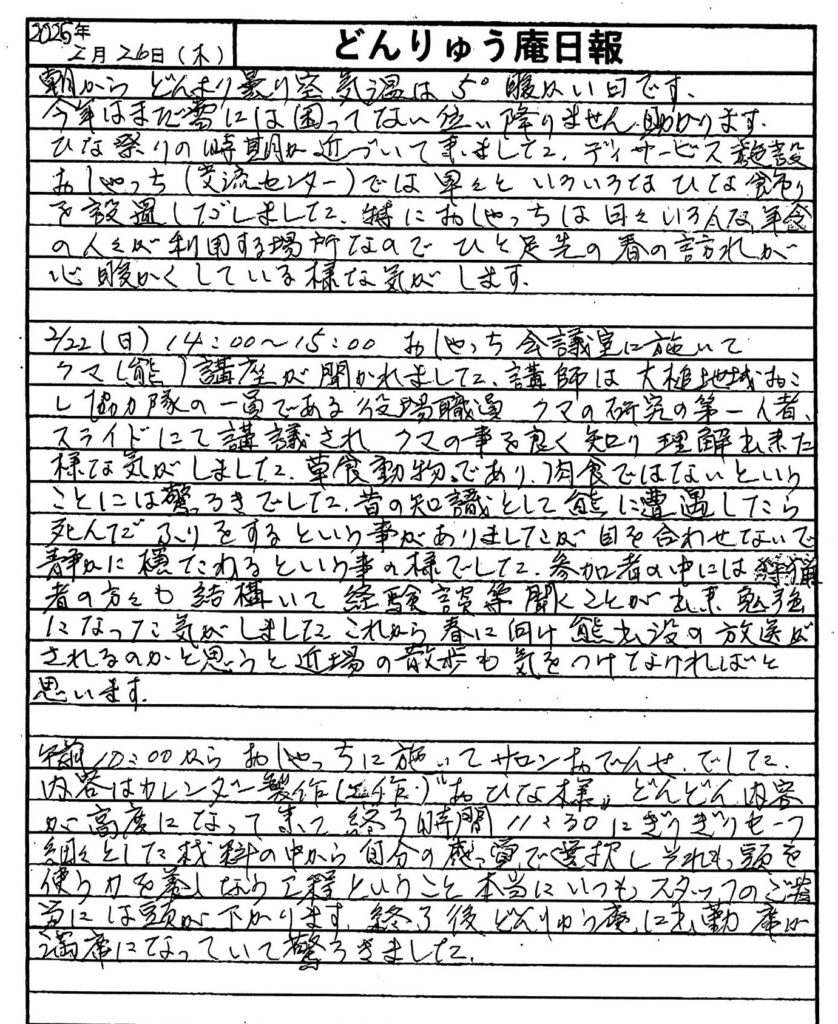 2026年
2月26日(木)
どんりゅう庵日報
朝から どんより曇り空 気温は5° 暖かい日です.
今年はまだ雪には困ってない位い降りません. 助かります.
ひな祭りの時期が近づいて来ました. ディサービス施設
おしゃっち(交流センター)では早々といろいろなひな飾り
を設置しだしました. 特におしゃっちは日々いろんな年令
の人々が利用する場所なので ひと足先の春の訪れが
心暖かくしている様な気がします.
2/22(日) 14:00〜15:00 おしゃっち会議室に施いて
クマ(熊)講座が開かれました. 講師は大槌地域おこ
し協力隊の一員である役場職員 クマの研究の第一人者.
スライドにて講議され クマの事を良く知り理解出来た
様な気がしました. 草食動物であり、肉食ではないという
ことには驚ろきでした. 昔の知識として熊に遭遇したら
死んだふりをするという事がありましたが 目を合わせないで
静かに横たわるという事の様でした. 参加者の中には狩猟
者の方々も結構いて 経験談等聞くことが出来 勉強
になった気がしました これから春に向け熊出没の放送が
されるのかと思うと近場の散歩も気をつけてなければと
思います.
午前10:00から おしゃっちに施いてサロンおでんせ. でした.
内容はカレンダー製作 "おひな様" どんどん内容
が高度になって来て 終了時間11:30にぎりぎりセーフ
細々とした材料の中から自分の感覚で選択しそれも頭を
使う力を養しなう工程ということ 本当にいつもスタッフのご
には頭が下がります. 終了後どんりゅう庵にも が
満席になっていて驚ろきました.